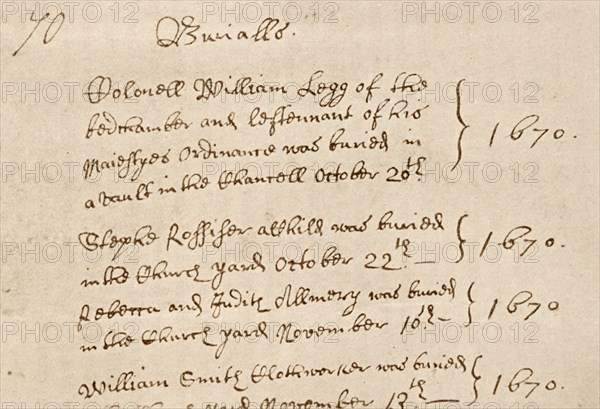 70 Burialls.
Colonell William Legg of the
bedchamber and leftennant of his
Majestyes Ordinance was buried in
a vault in the Chancell October 20th. 1670.
Stephe Rossiser a child was buried
in the Church yard October 22th 1670.
Rebecca and Judith Allmery was buried
in the Church yard November 10th 1670
William Smith Clothworker was buried
November 13th 1670.
PHOTO12